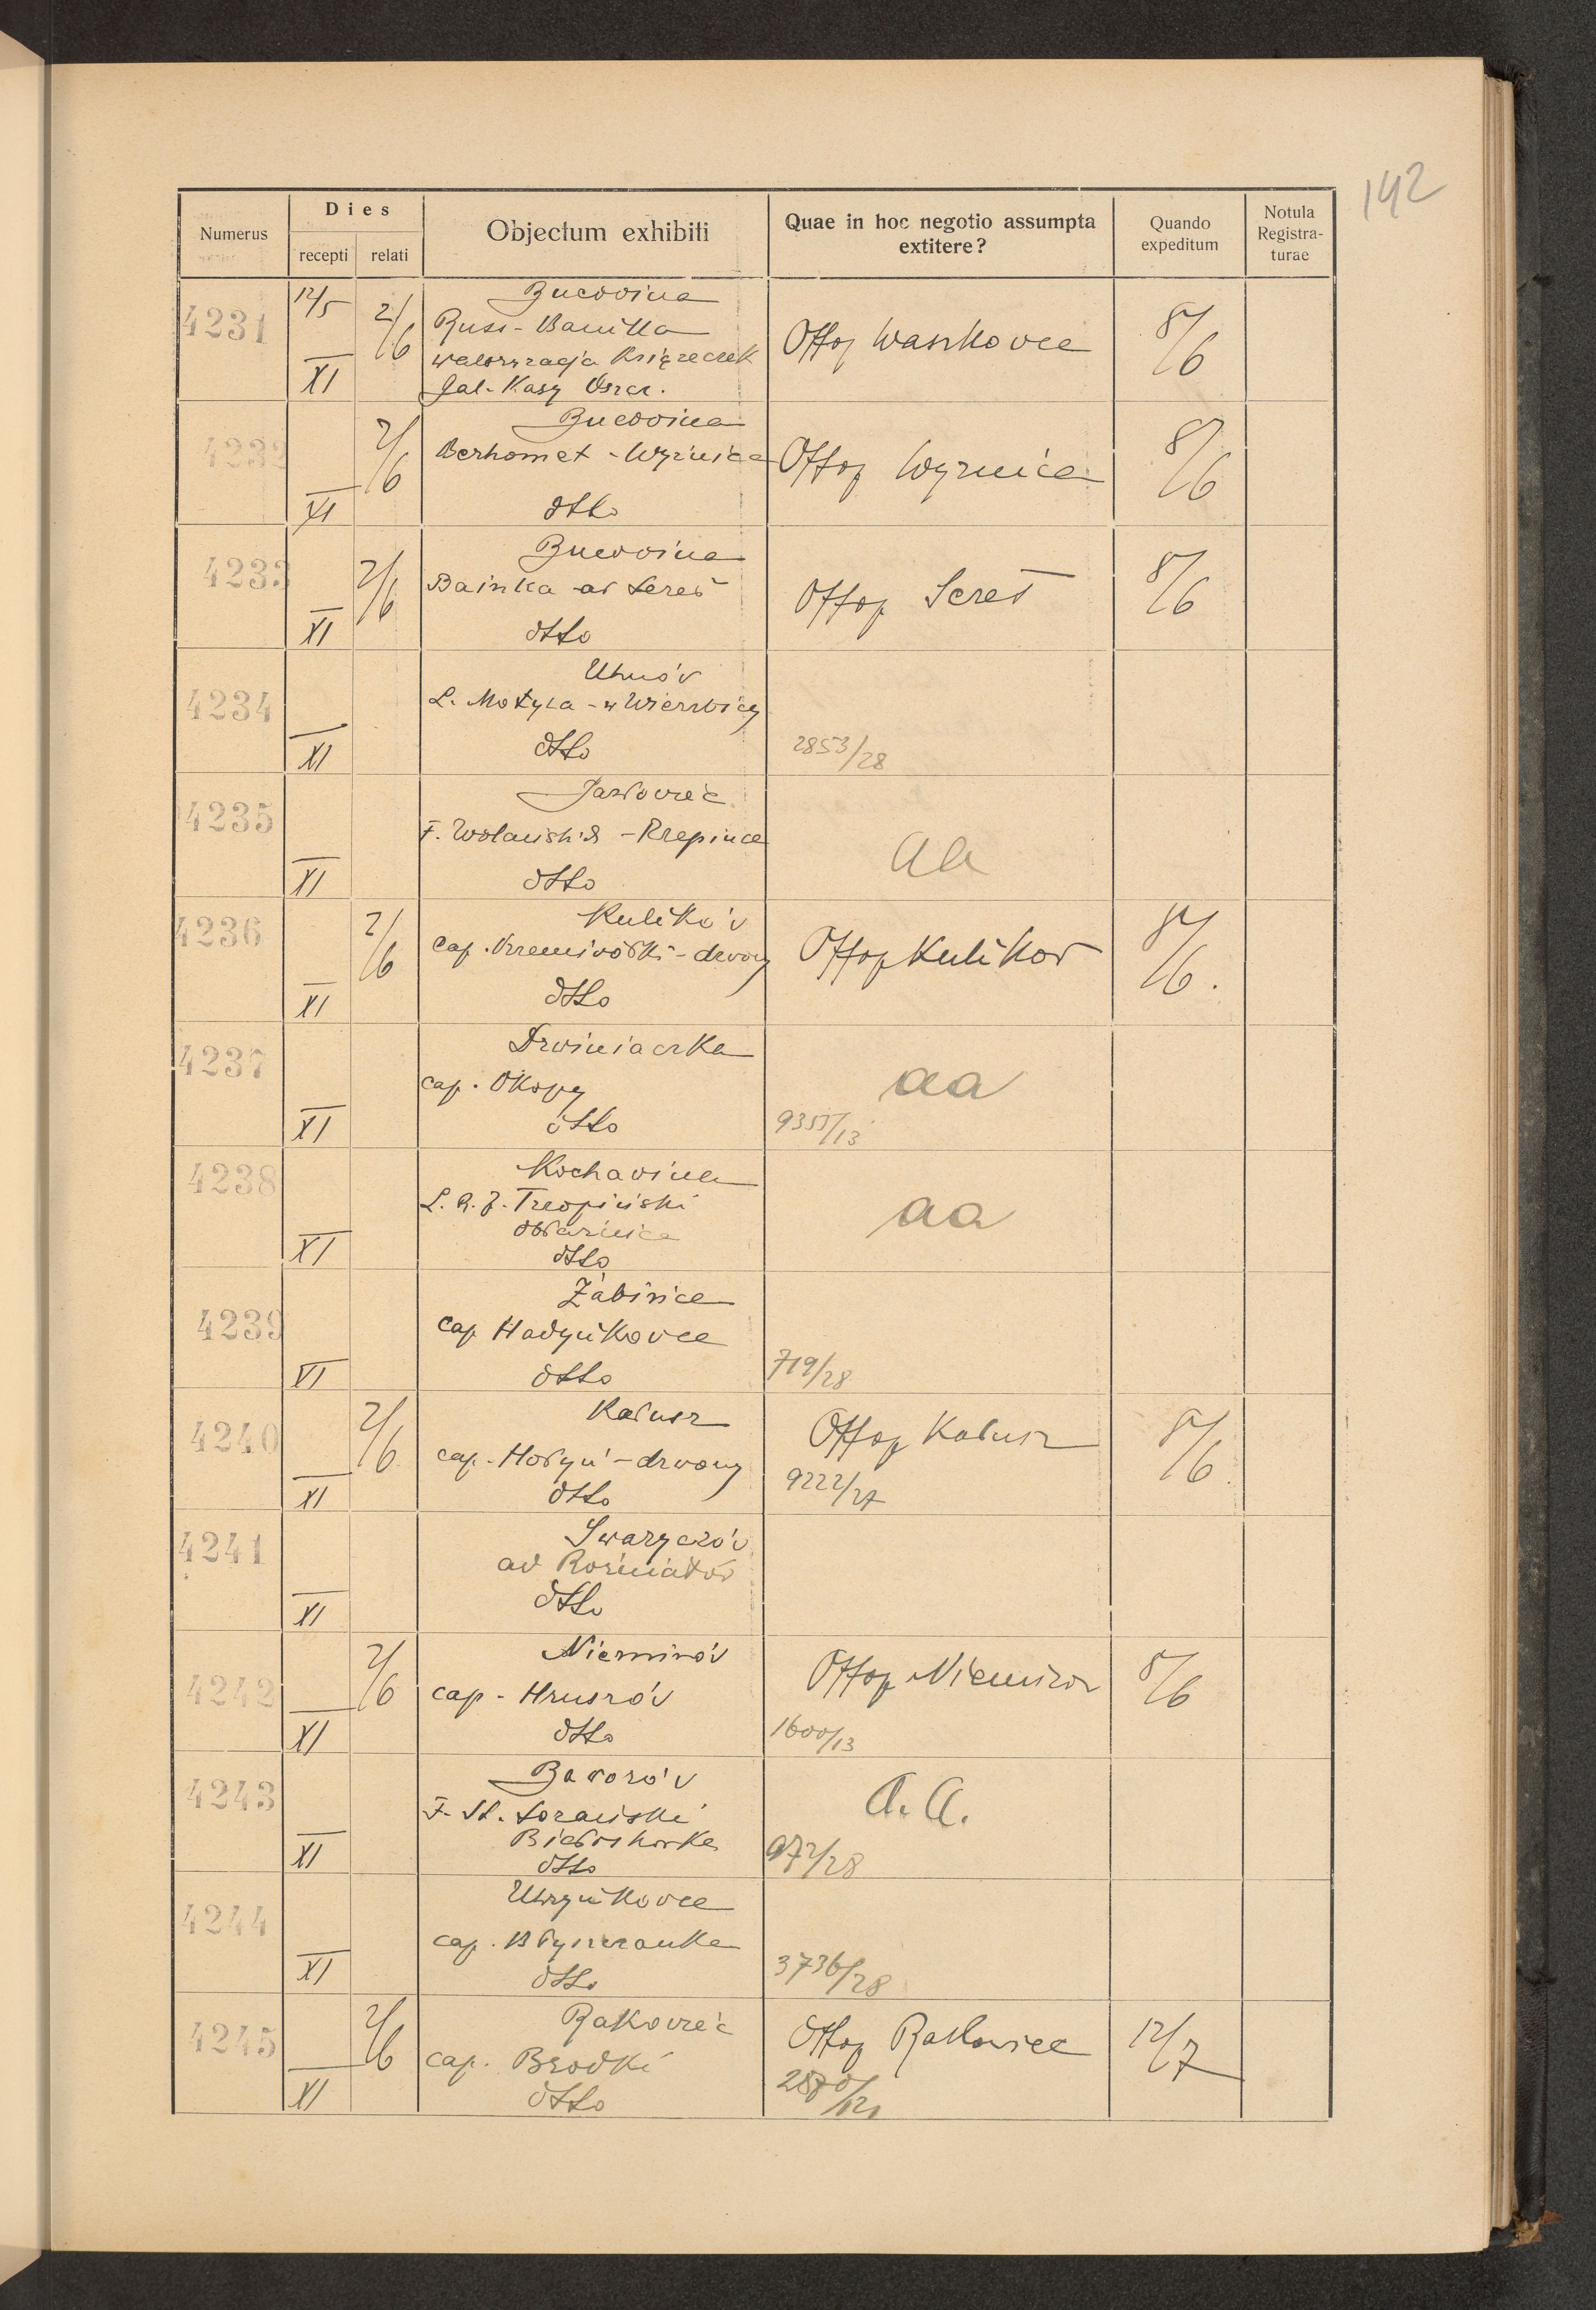 142
Numerus
Dies
recepti relati
Objectum exhibiti
Quae in hoc negotio assumpta
extitere?
Quando
expeditum
Notula
Registra-
turae
4231 12/5 XI 2/6
Bucovina
Russ-Banilla
waloryzacja Książeczek
Gal. Kasy Oszcz.
Offop Waszkovce 8/6
4232 XI 2/6
Bucovina
Berhomet - Wyżnica
dtto
Offop Wyżnica 8/6
4233 XI 2/6
Bucovina
Bainka ad Seret
dtto
Offop Seret 8/6
4234 XI
Uhnóv
L. Motyla - w Wierzbicy
dtto
2853/28
4235 XI
Jazłoviec
F. Wolański - Rzepince
dtto
aa
4236 XI 2/6
Kulikóv
cap. - drwony
dtto
Offop Kulikov 8/6.
4237 XI
Dzviniaczka
cap. Okopy
dtto
aa
9355/13
4238 XI
Kochavina
L. R. J. Trzopiński
Obłaźnica
dtto
aa
4239 XI
Żabińce
cap Hadyńkovce
dtto
719/28
4240 XI 2/6
Kałusz
cap. Hołyń - drwony
dtto
Offop Kałusz 8/6
9222/27
4241 XI
Swaryczóv
ad Rożniatóv
dtto
4242 XI 2/6
Niemiróv
cap - Hruszóv
dtto
Offop Niemirov 8/6
1600/13
4243 XI
Bavoróv
F. St.
Białoskórka
dtto
A. A.
972/28
4244 XI
Uhryńkovce
cap. Błyszczanka
dtto
3736/28
4245 XI 2/6
Rakoviec
cap. Brodki
dtto
Offop Rakoviec 12/7